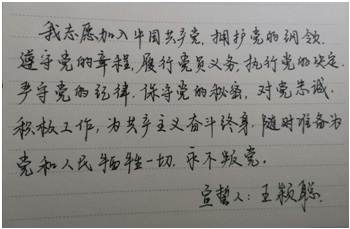 我志愿加入中国共产党，拥护党的纲领，
遵守党的章程，履行党员义务，执行党的决定，
严守党的纪律，保守党的秘密，对党忠诚，
积极工作，为共产主义奋斗终身，随时准备为
党和人民牺牲一切，永不叛党。
宣誓人：王颖聪